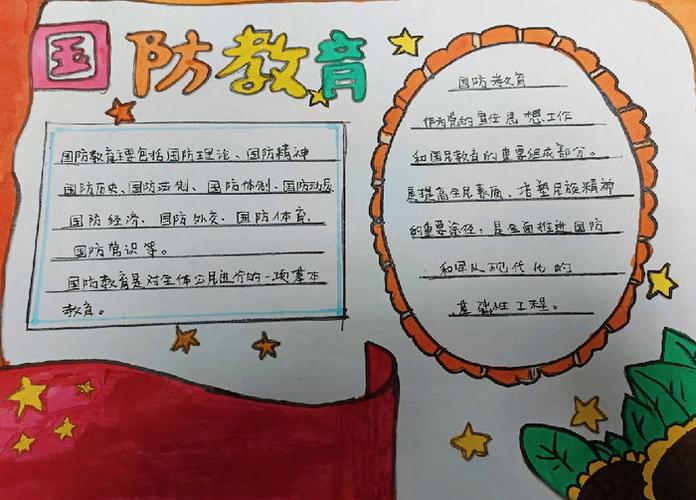 国防教育
国防教育主要包括国防理论、国防精神
国防历史、国防法制、国防体制、国防动员
国防经济、国防外交、国防体育、
国防常识等。
国防教育是对全体公民进行的一项基本
教育。
国防教育
作为党的宣传思想工作
和国民教育的重要组成部分。
是提高全民素质、培塑民族精神
的重要途径，是全面推进国防
和军队现代化的
基础性工程。